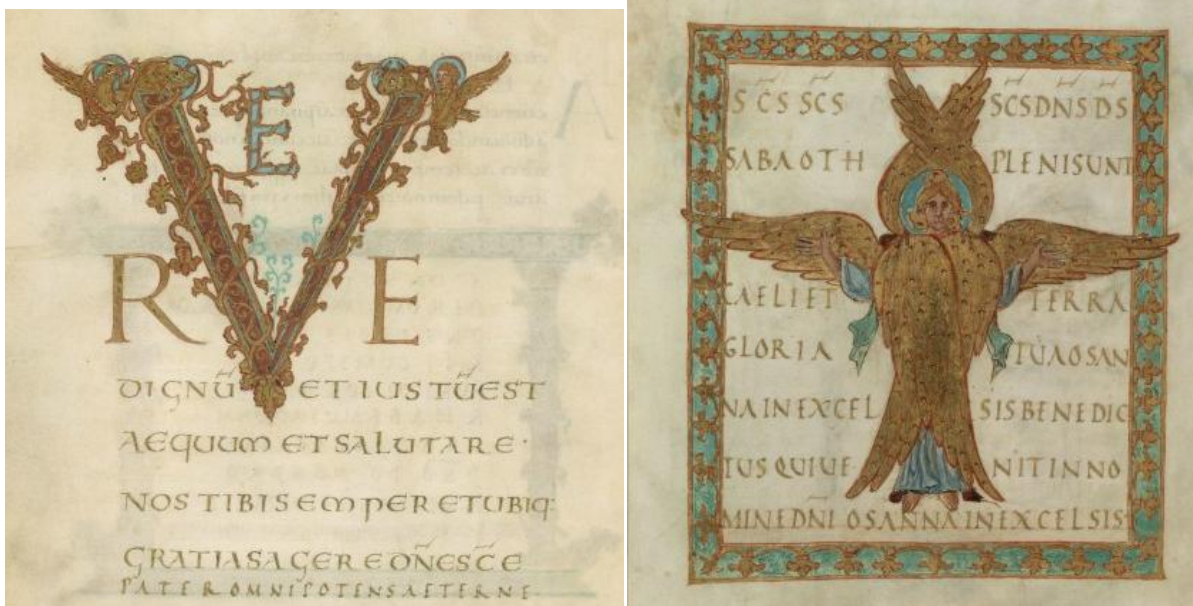 VE
RE
DIGNŪ ET IUSTŪEST
AEQUUM ETSALUTARE·
NOS TIBISEMPER ETUBIQ:
GRATIASAGERE DÑESC̄E
PATEROMNIPOTENSAETERNE
S̄C̄S S̄C̄S S̄C̄SDN̄SD̄S
SABAOTH PLENISUNT
CAELIET TERRA
GLORIA TUAOSAN
NAINEXCEL SISBENEDIC
TUSQUIUE NITINNO
MINEDN̄I OSANNAINEXCELSIS